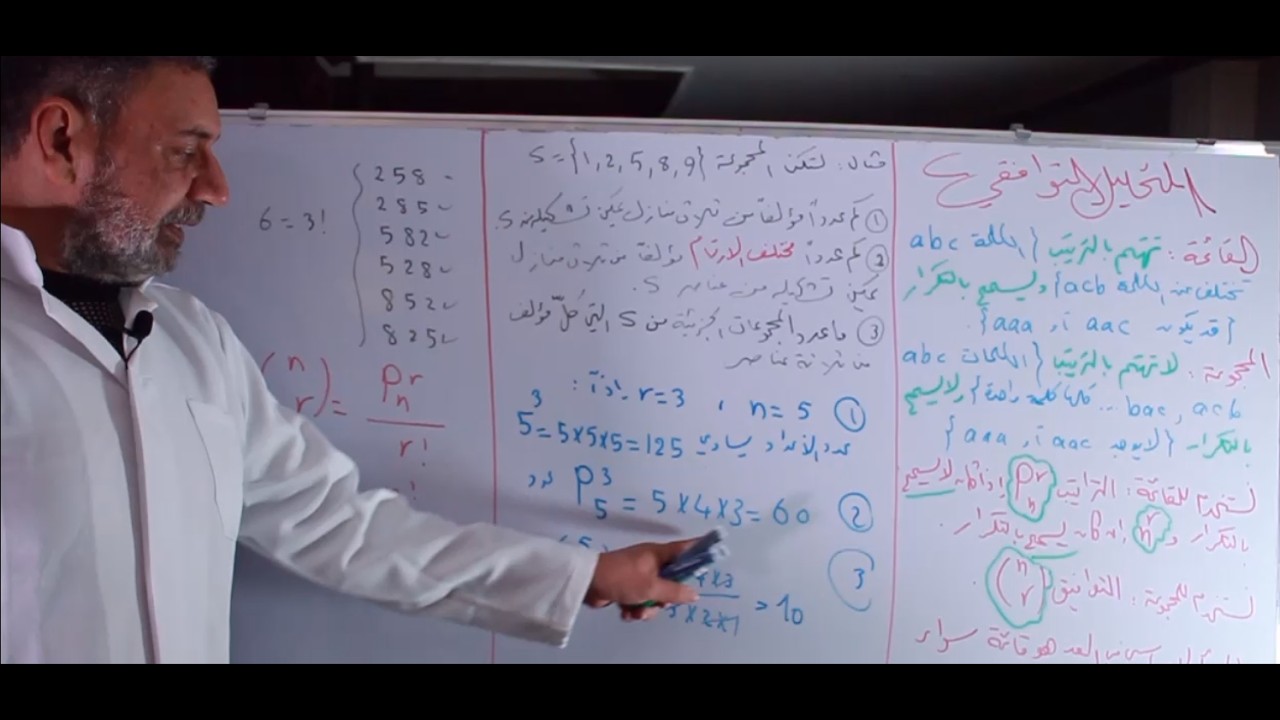 التحليل التوافقي
القائمة : تهتم بالترتيب { الكلمة abc
تختلف عن الكلمة acb } ويسمح بالتكرار
{ قد يكون aac أو aaa }
المجموعة : لا تهتم بالترتيب { الكلمات abc
acb ، bac ... كلها كلمة واحدة } ولا يسمح
بالتكرار { لا يوجد aac أو aaa }
نستخدم للقائمة : التراتيب P_n^r إذا كان لا يسمح
بالتكرار و n^r إذا كان يسمح بالتكرار .
نستخدم للمجموعة : التوافيق (n r)
هو قائمة سواء
مثال : لتكن المجموعة S = {1, 2, 5, 8, 9}
① كم عدداً مؤلفاً من ثلاث منازل يمكن تشكيله من S .
② كم عدداً مختلف الأرقام مؤلفاً من ثلاث منازل
يمكن تشكيله من عناصر S .
③ ما عدد المجموعات الجزئية من S التي كلّ مؤلف
من ثلاثة عناصر
① n = 5 ، r = 3 إذاً :
عدد الأعداد يساوي 5^3 = 5×5×5 = 125
② P_5^3 = 5×4×3 = 60 عدد
③ 4×3
3×2×1 = 10
258
285
582
528
852
825
6 = 3!
(n r) = P_n^r / r!